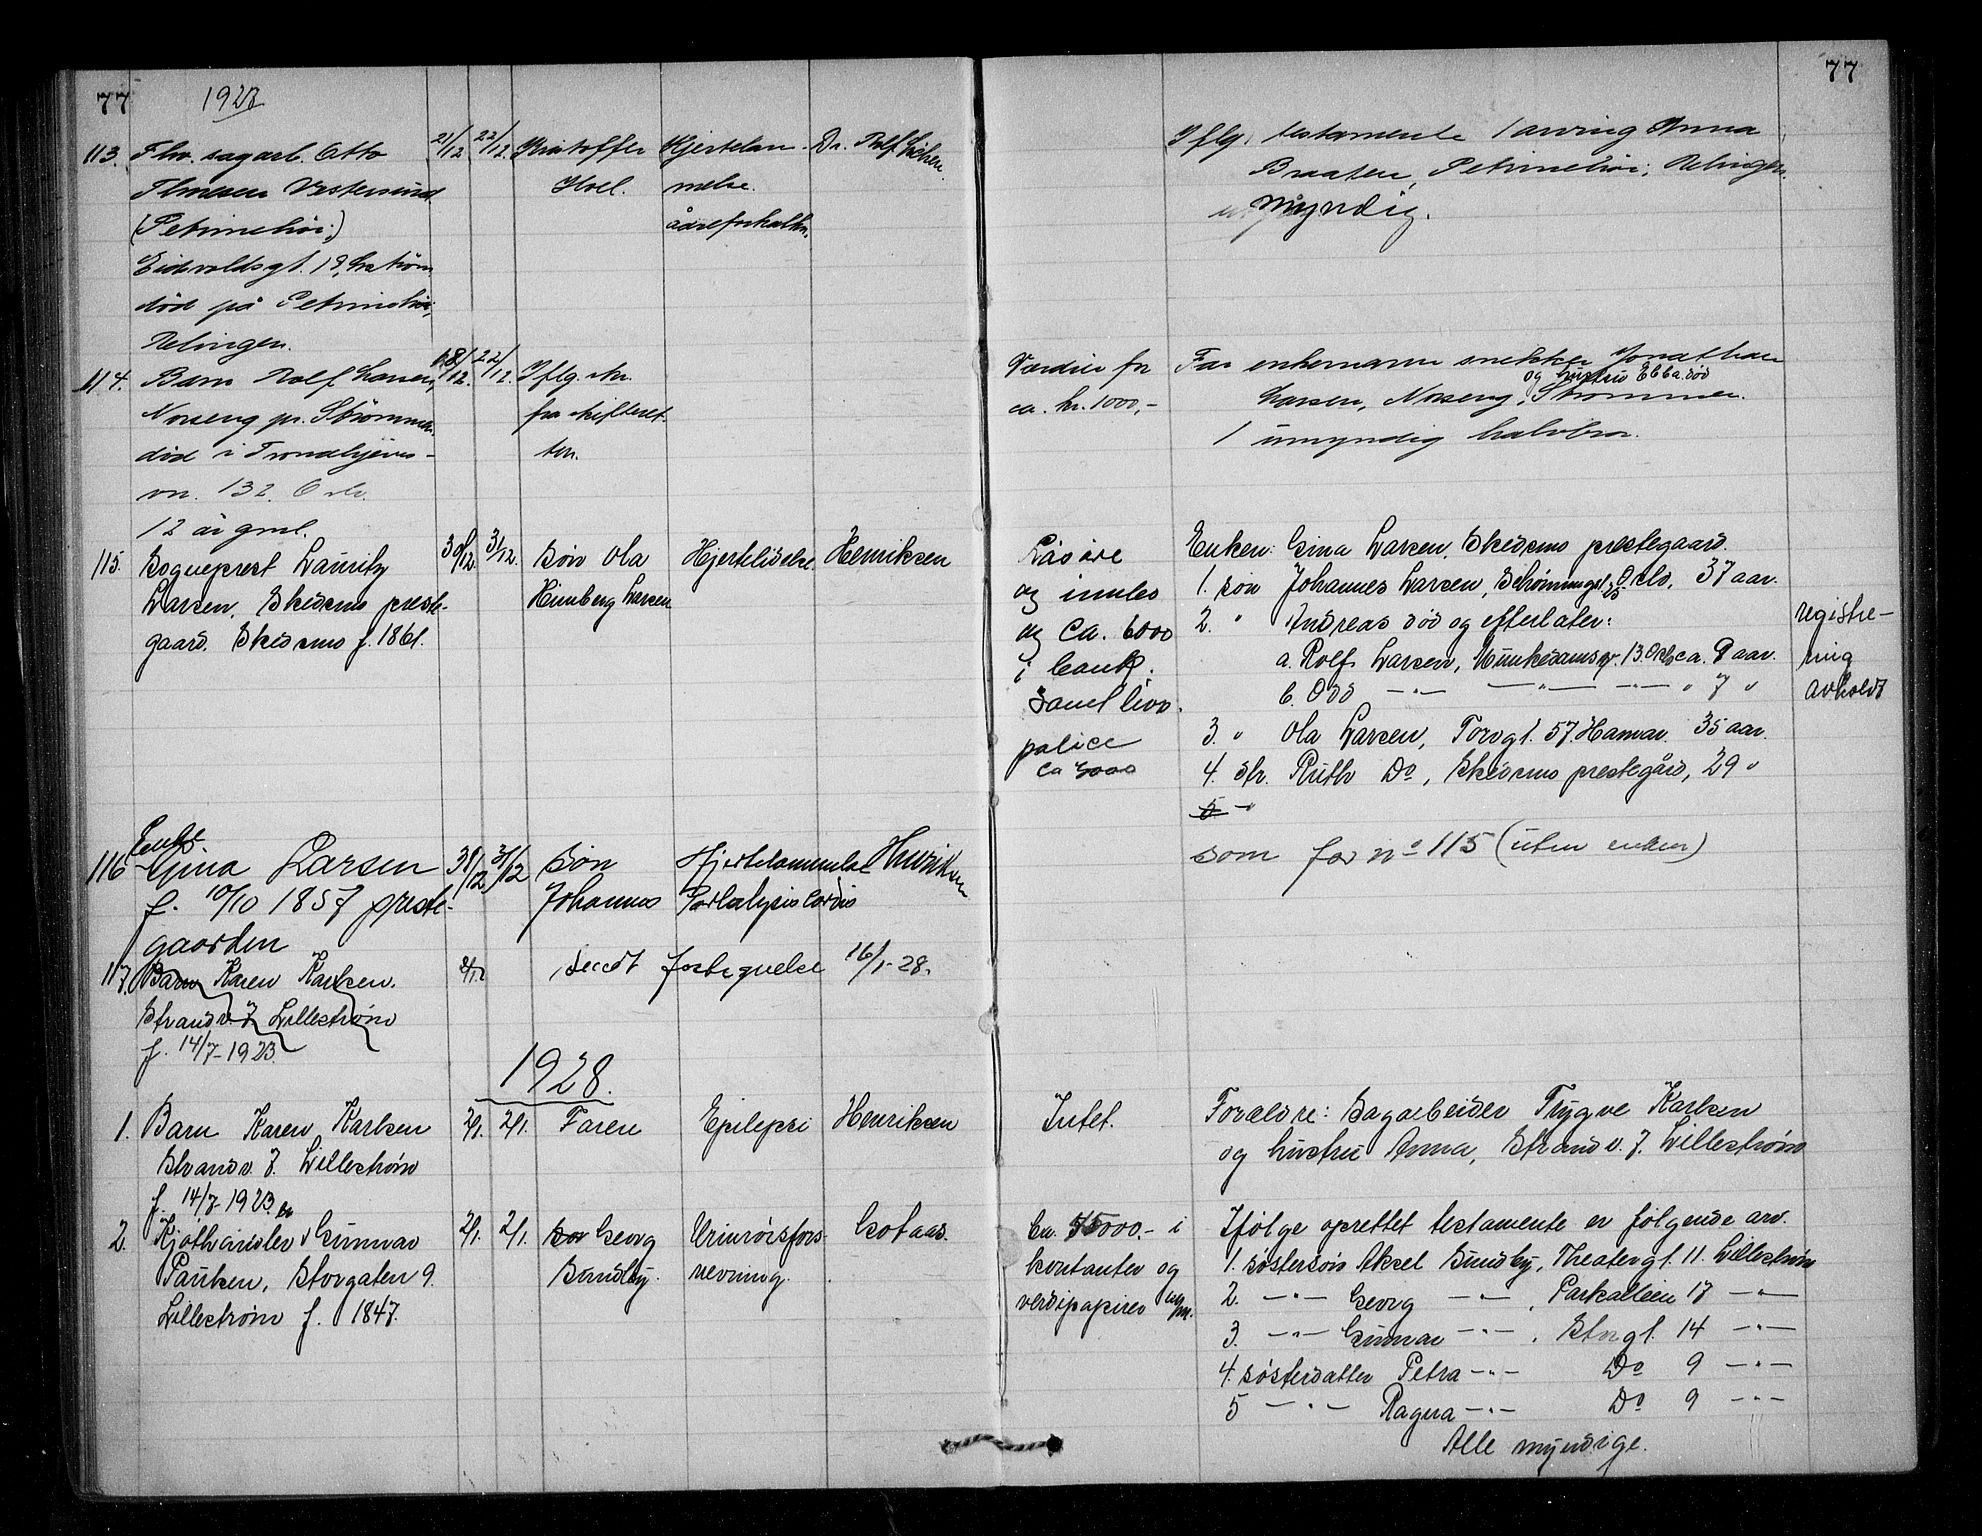 77
1927
113. Fhv. sagarb. Otto
Thoresen Vestersund
(Petrinehöi)
Eidsvoldsgt. 19, Lstrøm
död på Petrinehöi,
Relingen.
21/12 22/12. Kristoffer
Hvel.
Hjertelam-
melse.
åreforkalkn.
Dr. Rolf
114. Barn Rolf Larsen,
Norseng pr. Strømmen.
död i Trondhjems-
vn. 132. Oslo.
12 år gml.
18/12. 22/12. Iflg. skr.
fra skifteret-
ten.
115. Sogneprest Lauritz
Larsen, Skedsmo preste-
gaard. Skedsmo f. 1861.
30/12. 31/12. søn Ola
Himberg Larsen
Hjertelidelse
Henriksen
116 Enke.
Gina Larsen
f. 10/10 1857 preste-
gaarden
31/12 31/12 søn
Johannes
Hjertelammelse
Paralysis cordis
Henriksen
117. Barn Karen Karlsen.
Strandv. 7 Lillestrøm
f. 14/7-1923.
2/1. se
1928.
1. Barn Karen Karlsen
Strandv. 7. Lillestrøm
f. 14/7-1923.
2/1. 2/1. Faren
Epilepsi
Henriksen
2. Kjøthandler Gunnar
Paulsen, Storgaten 9.
Lillestrøm f. 1847.
2/1. 2/1. Georg
Sundby.
Urinrørsfors-
nevring.
Gotaas.
77
Iflg. testamente 1 arving Anna
Braaten, Petrinehöi, Relingen.
myndig.
Verdier for
ca. kr. 1000,-
Far enkemann snekker Jonathan
og hustru Ebba. död
Larsen, Norseng, Strømmen.
1 umyndig halvbror.
Løsøre
og innbo
og ca. 6000
i bank.
samt livs.
police
ca 5000
Enken: Gina Larsen, Skedsmo prestegaard.
1. søn Johannes Larsen, Schønningsgt. 25 Oslo, 37 aar.
2. " Andreas død og efterlater:
a. Rolf Larsen, Munkedamsv. 13. Oslo ca. 9 aar.
b. Odd —"— —"— —"— " 7 "
3. " Ola Larsen, Torvgt. 57. Hamar. 35 aar.
4. dtr. Ruth Do, Skedsmo prestegård, 29 "
5 "
registre-
ring
avholdt
som for no 115 (uten enken)
Intet.
Forældre: Sagarbeider Trygve Karlsen
og hustru Anna, Strandv. 7. Lillestrøm
Ca. 55000.- i
kontanter og
verdipapirer
Ifølge oprettet testamente er følgende arv.
1. søstersøn Aksel Sundby, Theatergt. 11. Lillestrøm
2. —"— Georg —"—, Parkalleen 17 —"—
3. —"— Gunnar —"—. Storgt. 14 —"—
4. søsterdatter Petra —"— Do 9 —"—
5 —"— Ragna —"— Do 9 —"—
Alle myndige.